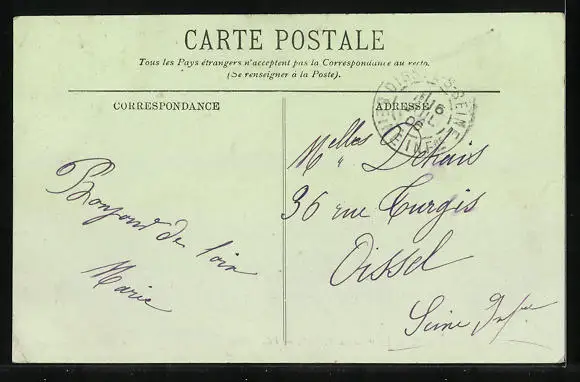 CARTE POSTALE
Tous les Pays étrangers n'acceptent pas la Correspondance au recto.
(Se renseigner à la Poste).
CORRESPONDANCE
ADRESSE
Bonjour de loin
Marie
Melles Dehais
36 rue Turgis
Oissel
Seine Infre
OISSEL-S-SEINE
16